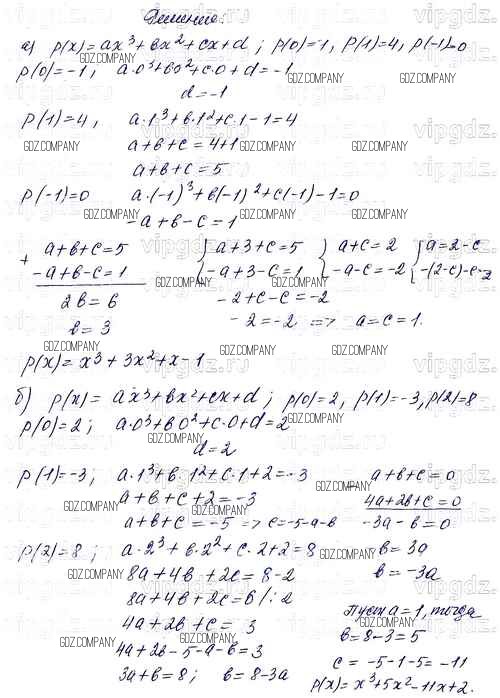 Решение:
а) p(x) = ax³ + bx² + cx + d ; p(0) = -1, p(1) = 4, p(-1) = 0
p(0) = -1 ; a·0³ + b·0² + c·0 + d = -1
d = -1
p(1) = 4, a·1³ + b·1² + c·1 - 1 = 4
a + b + c = 4 + 1
a + b + c = 5
p(-1) = 0 a·(-1)³ + b(-1)² + c(-1) - 1 = 0
-a + b - c = 1
+ a + b + c = 5 { a + 3 + c = 5 { a + c = 2 { a = 2 - c
-a + b - c = 1 -a + 3 - c = 1 -a - c = -2 -(2 - c) - c = -2
2b = 6 -2 + c - c = -2
b = 3 -2 = -2 => a = c = 1.
p(x) = x³ + 3x² + x - 1
б) p(x) = ax³ + bx² + cx + d ; p(0) = 2, p(1) = -3, p(2) = 8
p(0) = 2 ; a·0³ + b·0² + c·0 + d = 2
d = 2
p(1) = -3, a·1³ + b·1² + c·1 + 2 = -3
a + b + c + 2 = -3
a + b + c = -5 => c = -5 - a - b
p(2) = 8 ; a·2³ + b·2² + c·2 + 2 = 8
8a + 4b + 2c = 8 - 2
8a + 4b + 2c = 6 /:2
4a + 2b + c = 3
4a + 2b - 5 - a - b = 3
3a + b = 8 ; b = 8 - 3a
- a + b + c = 0
4a + 2b + c = 0
-3a - b = 0
b = 3a
b = -3a
Пусть a = 1, тогда
b = 8 - 3 = 5
c = -5 - 1 - 5 = -11
p(x) = x³ + 5x² - 11x + 2.
vipgdz.ru
GDZ.COMPANY